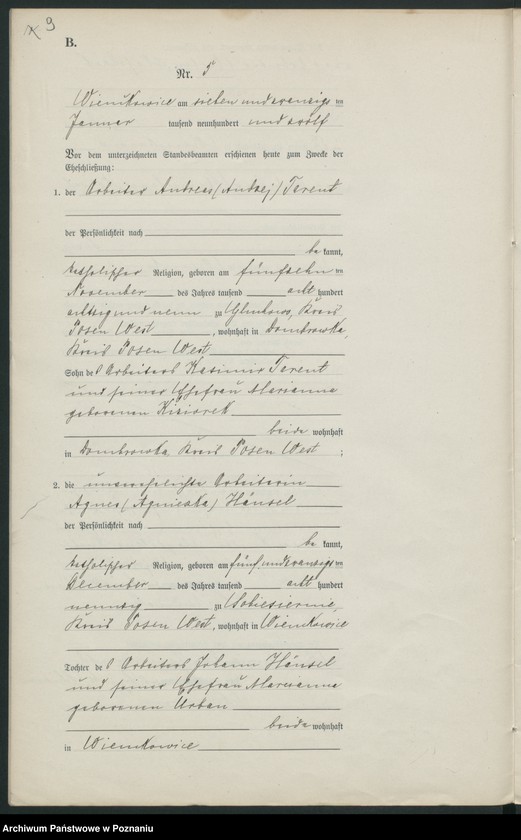 9
B.
Nr. 5
Wienckowice am sieben und zwanzigs ten
Januar tausend neunhundert und zwölf
Vor dem unterzeichneten Standesbeamten erschienen heute zum Zwecke der
Eheschließung:
1. der Arbeiter Andreas (Andrzej) Terent
der Persönlichkeit nach
be kannt,
katholischer Religion, geboren am fünfzehn ten
November des Jahres tausend acht hundert
achtzig und neun zu Gluchowo, Kreis
Posen West, wohnhaft in Dombrowka,
Kreis Posen West
Sohn des Arbeiters Kasimir Terent
und seiner Ehefrau Marianna
geborenen Kisiorek
beide wohnhaft
in Dombrowka Kreis Posen West ;
2. die unverehelichte Arbeiterin
Agnes (Agnieska) Hänsel
der Persönlichkeit nach
be kannt,
katholischer Religion, geboren am fünf und zwanzigs ten
Dezember des Jahres tausend acht hundert
neunzig zu Sobiesiernie,
Kreis Posen West, wohnhaft in Wienckowice
Tochter des Arbeiters Johann Hänsel
und seiner Ehefrau Marianna
geborenen Urban
beide wohnhaft
in Wienckowice
Archiwum Państwowe w Poznaniu